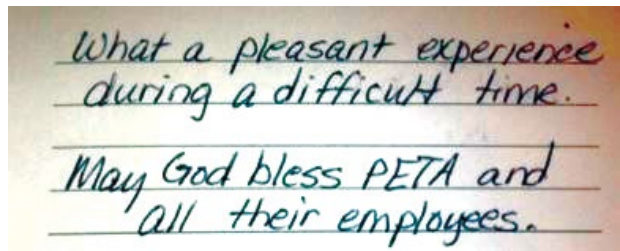 What a pleasant experience
during a difficult time.
May God bless PETA and
all their employees.